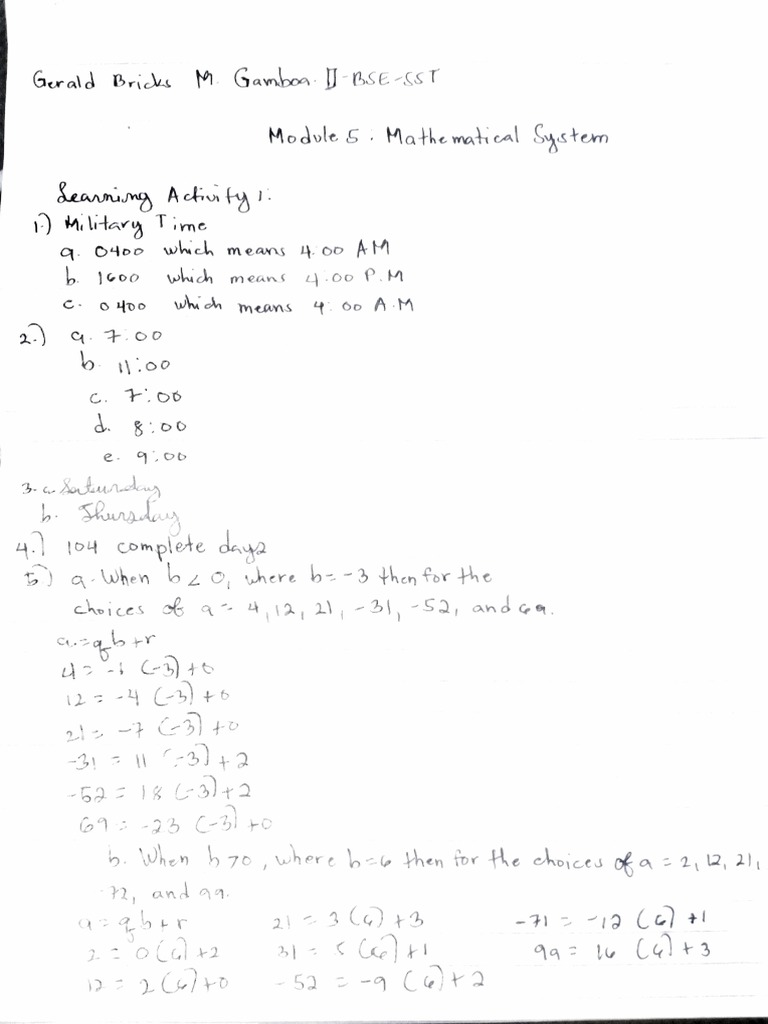 Gerald Bricks M. Gamboa II-BSE-SST
Module 5. Mathematical System
Learning Activity 1:
1.) Military Time
a. 0400 which means 4:00 AM
b. 1600 which means 4:00 P.M
c. 0400 which means 4:00 A.M
2.) a. 7:00
b. 11:00
c. 7:00
d. 8:00
e. 9:00
3. a. Saturday
b. Thursday
4.) 104 complete days
5.) a. When b < 0, where b = -3 then for the
choices of a = 4, 12, 21, -31, -52, and 69.
a = qb + r
4 = -1 (-3) + 0
12 = -4 (-3) + 0
21 = -7 (-3) + 0
-31 = 11 (-3) + 2
-52 = 18 (-3) + 2
69 = -23 (-3) + 0
b. When b > 0, where b = 6 then for the choices of a = 2, 12, 21,
-72, and 99.
a = qb + r 21 = 3 (6) + 3 -71 = -12 (6) + 1
2 = 0 (6) + 2 31 = 5 (6) + 1 99 = 16 (6) + 3
12 = 2 (6) + 0 -52 = -9 (6) + 2